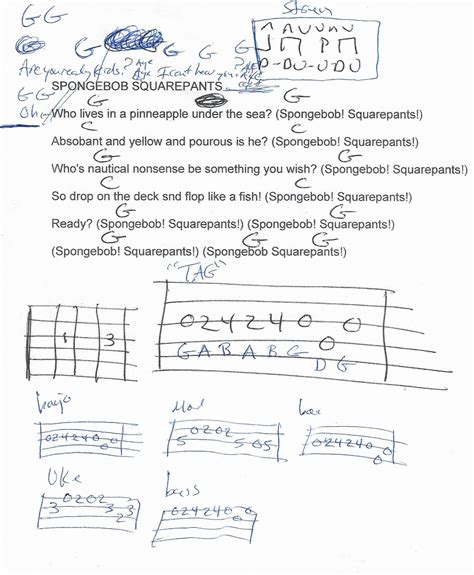 G G
Strum
G G G G G
Π V Π V
D-DU-UDU
Are you ready kids? Aye Aye I can't hear you!
G G
SPONGEBOB SQUAREPANTS
Oh
G G
Who lives in a pinneapple under the sea? (Spongebob! Squarepants!)
C G
Absobant and yellow and pourous is he? (Spongebob! Squarepants!)
G
Who's nautical nonsense be something you wish? (Spongebob! Squarepants!)
C G
So drop on the deck snd flop like a fish! (Spongebob! Squarepants!)
G G
Ready? (Spongebob! Squarepants!) (Spongebob! Squarepants!)
G G
(Spongebob! Squarepants!) (Spongebob Squarepants!)
"TAG"
1 3
0 2 4 2 4 0 0 0
G A B A B G D G
banjo
0 2 4 2 4 0 0 0
5 0 2 0 2 5 0 5
0 2 4 2 4 0 0 0
Uke bass
3 0 2 0 2 3 2 3
0 2 4 2 4 0 0 0